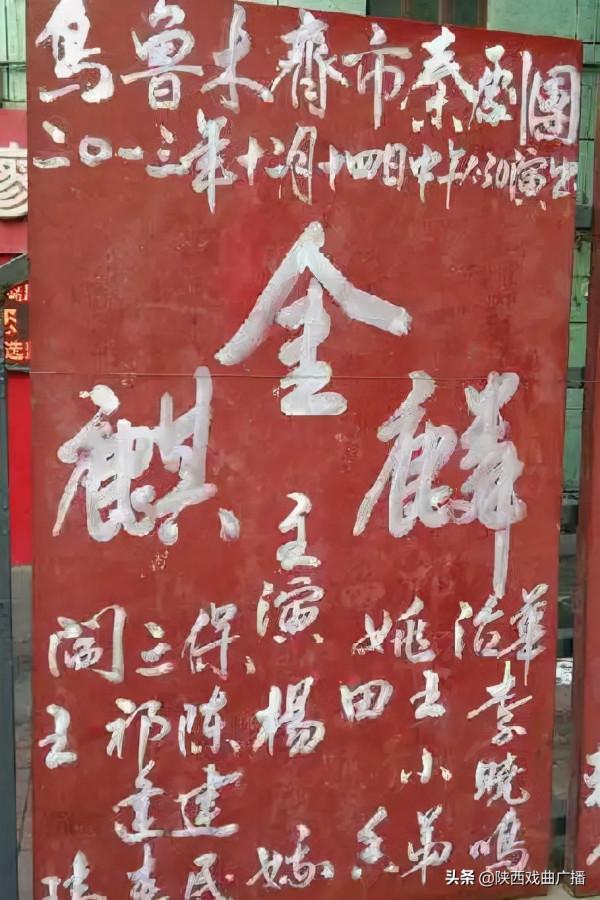 乌鲁木齐市秦剧團
二〇一三年十二月十四日中午1:30演出
金
麒麟
主演
阎三保
姚治華
王
祁
陈建民
楊
田
王小弟
李晓鸣
头条 @陕西戏曲广播